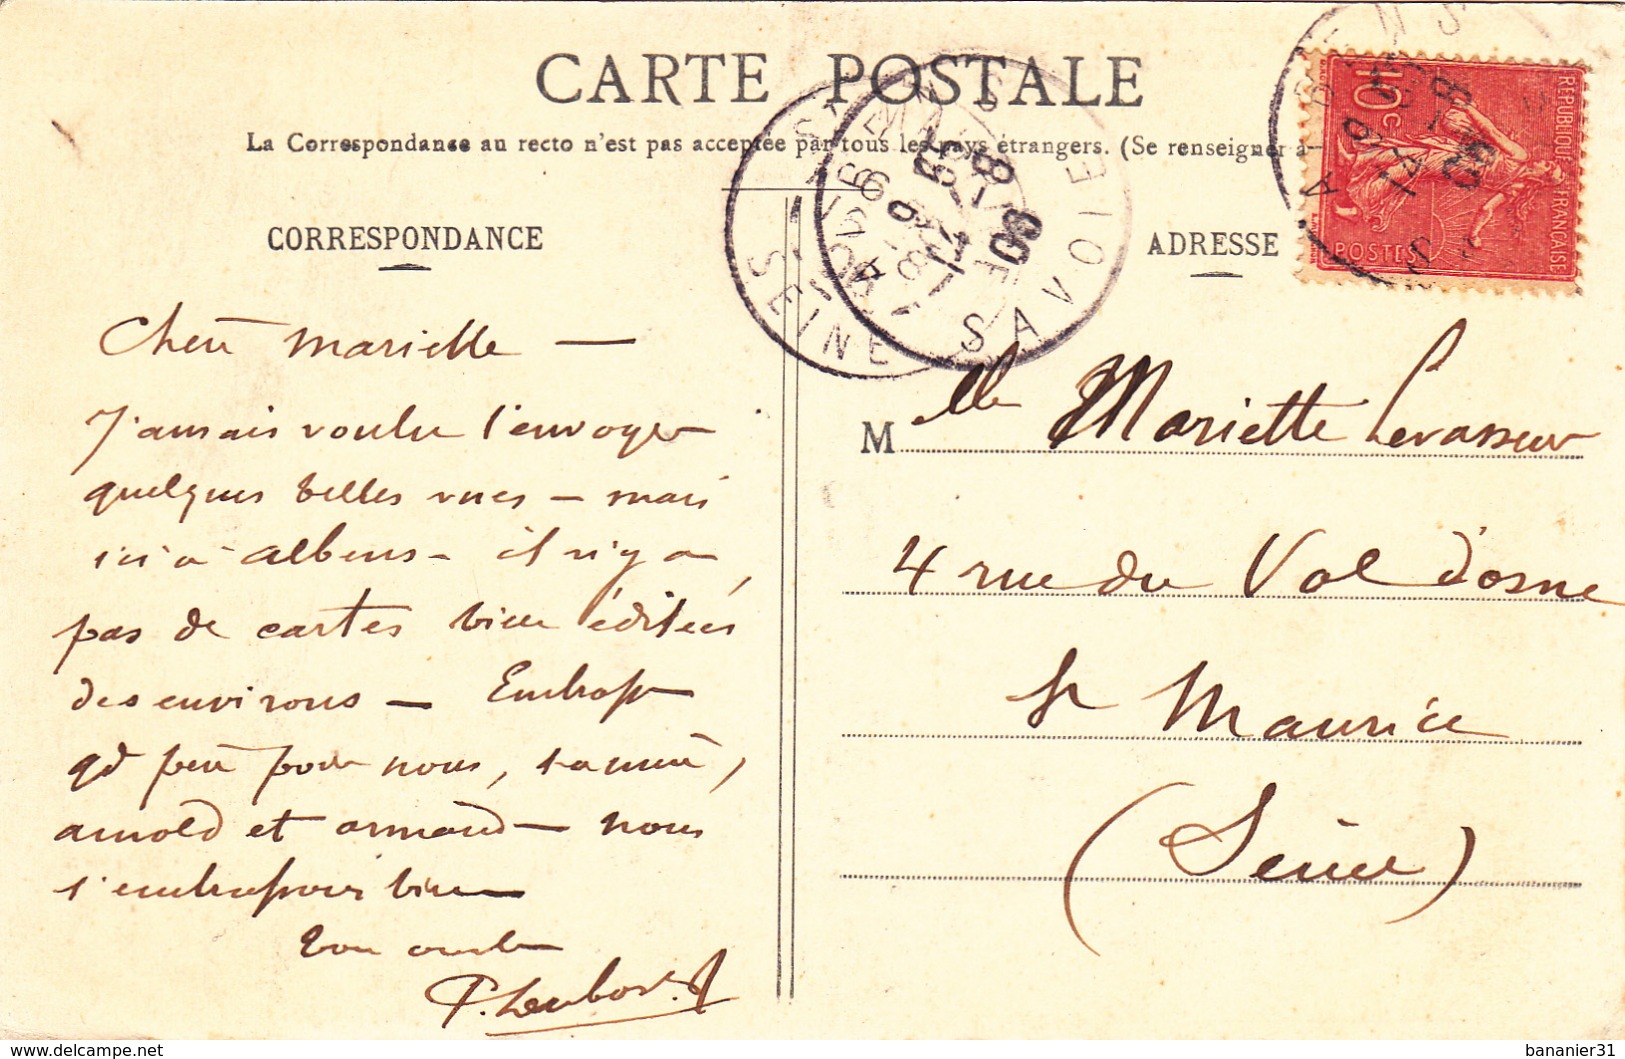 CARTE POSTALE
La Correspondance au recto n'est pas acceptée par tous les pays étrangers. (Se renseigner à
CORRESPONDANCE
ADRESSE
REPUBLIQUE FRANÇAISE
10c
POSTES
ALBENS
SAVOIE
SEINE
Chère Mariette —
J'aurais voulu t'envoyer
quelques belles vues — mais
ici à Albens — il n'y a
pas de cartes bien éditées
des environs — Embrasse
gd père pour nous, ta mère,
Arnold et Armand — nous
t'embrassons bien
Ton oncle
Melle Mariette Levasseur
4 rue du Val d'osne
St Maurice
(Seine)
bananier31